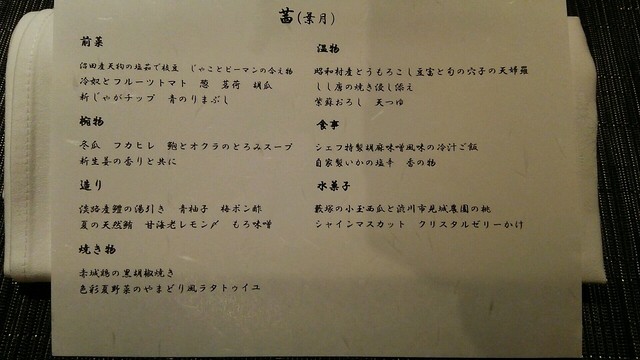 茜(葉月)
前菜
沼田産天狗の塩茹で枝豆 じゃことピーマンの合え物
冷奴とフルーツトマト 葱 茗荷 胡瓜
新じゃがチップ 青のりまぶし
椀物
冬瓜 フカヒレ 鮑とオクラのとろみスープ
新生姜の香りと共に
造り
淡路産鱧の湯引き 青柚子 梅ポン酢
夏の天然鮪 甘海老レモン〆 もろ味噌
焼き物
赤城鶏の黒胡椒焼き
色彩夏野菜のやまどり風ラタトゥイユ
温物
昭和村産とうもろこし豆富と旬の穴子の天婦羅
しし唐の焼き浸し添え
紫蘇おろし 天つゆ
食事
シェフ特製胡麻味噌風味の冷汁ご飯
自家製いかの塩辛 香の物
水菓子
藪塚の小玉西瓜と渋川市見城農園の桃
シャインマスカット クリスタルゼリーかけ